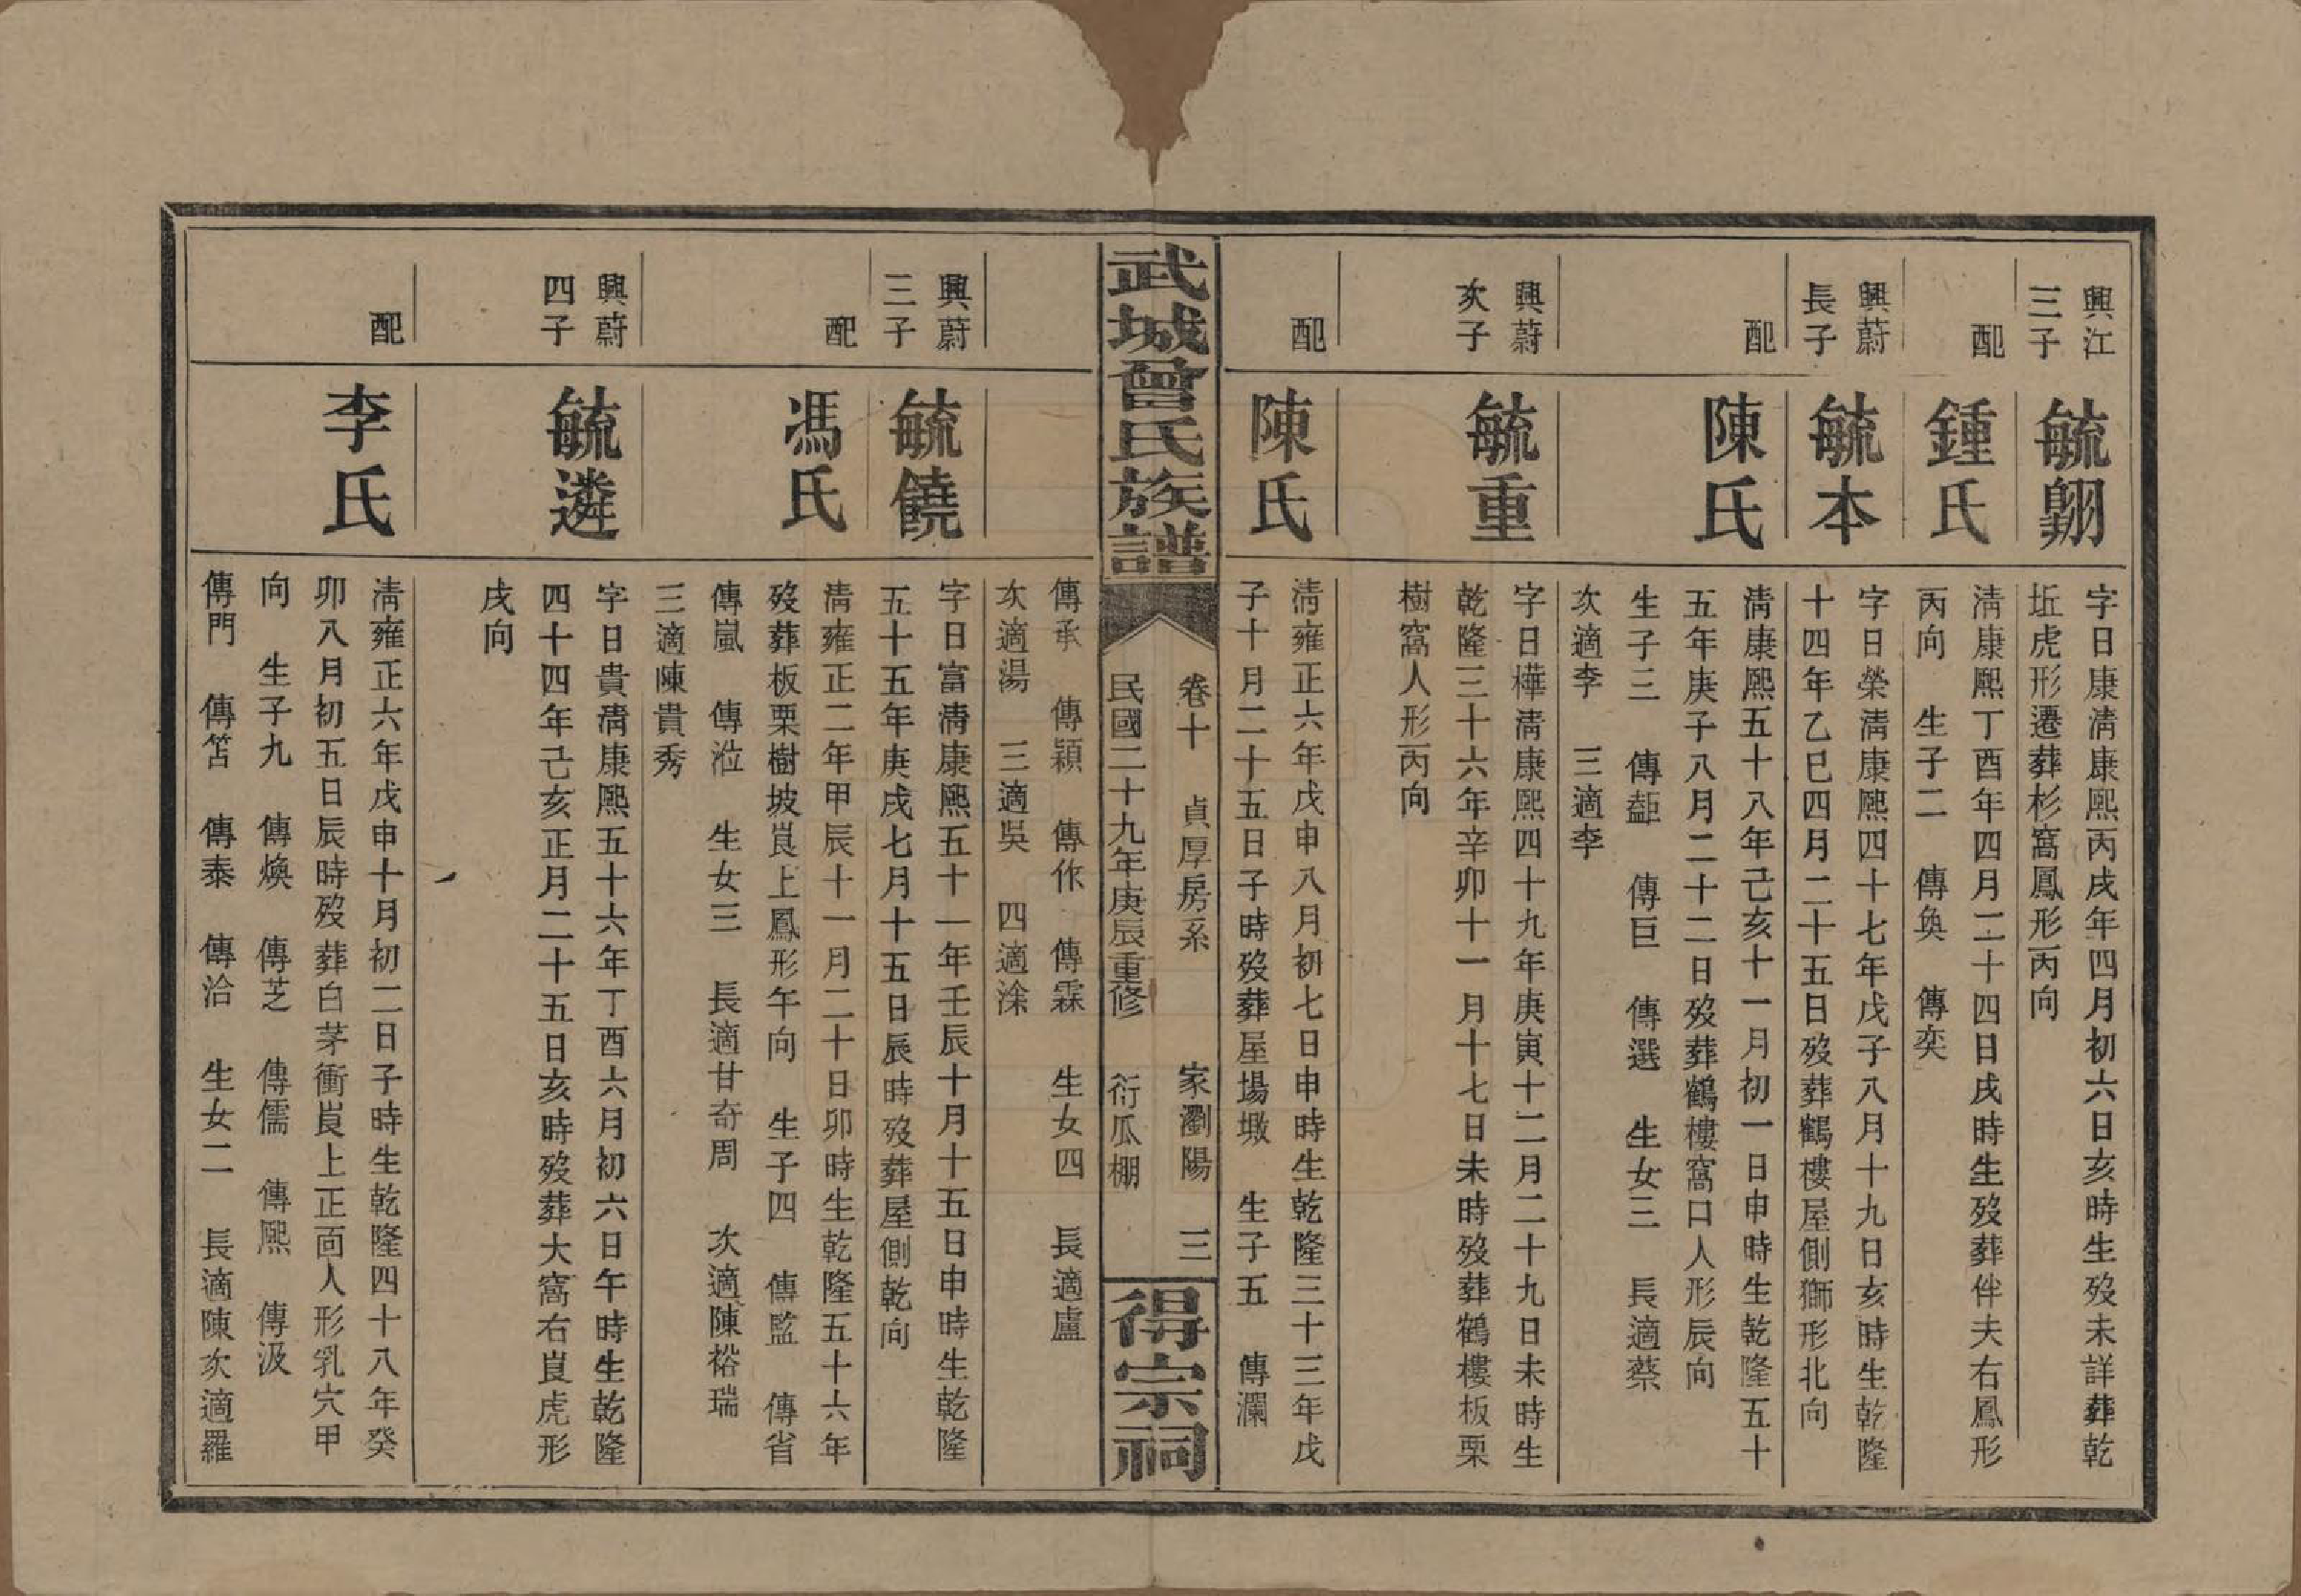 興江
三子
毓翶
字日康清康熙丙戌年四月初六日亥時生歿未詳葬乾
坵虎形遷葬杉窩鳳形丙向
配
鍾氏
清康熙丁酉年四月二十四日戌時生歿葬伴夫右鳳形
丙向 生子二 傳奐 傳奕
興蔚
長子
毓本
字日榮清康熙四十七年戊子八月十九日亥時生乾隆
十四年乙巳四月二十五日歿葬鶴樓屋側獅形北向
配
陳氏
清康熙五十八年己亥十一月初一日申時生乾隆五十
五年庚子八月二十二日歿葬鶴樓窩口人形辰向
生子三 傳 傳巨 傳選 生女三 長適蔡
次適李 三適李
興蔚
次子
毓重
字日樺清康熙四十九年庚寅十二月二十九日未時生
乾隆三十六年辛卯十一月十七日未時歿葬鶴樓板栗
樹窩人形丙向
配
陳氏
清雍正六年戊申八月初七日申時生乾隆三十三年戊
子十月二十五日子時歿葬屋場墩 生子五 傳瀾
武城曾氏族譜
卷十 貞厚房系 家瀏陽 三
民國二十九年庚辰重修 衍瓜棚
得宗祠
傳承 傳穎 傳作 傳霖 生女四 長適盧
次適湯 三適吳 四適涂
興蔚
三子
毓饒
字日富清康熙五十一年壬辰十月十五日申時生乾隆
五十五年庚戌七月十五日辰時歿葬屋側乾向
配
馮氏
清雍正二年甲辰十一月二十日卯時生乾隆五十六年
歿葬板栗樹坡崀上鳳形午向 生子四 傳監 傳省
傳嵐 傳涖 生女三 長適甘奇周 次適陳裕瑞
三適陳貴秀
興蔚
四子
毓遴
字日貴清康熙五十六年丁酉六月初六日午時生乾隆
四十四年己亥正月二十五日亥時歿葬大窩右崀虎形
戌向
配
李氏
清雍正六年戊申十月初二日子時生乾隆四十八年癸
卯八月初五日辰時歿葬白茅衝崀上正面人形乳穴甲
向 生子九 傳煥 傳芝 傳儒 傳熙 傳汲
傳門 傳笘 傳泰 傳洽 生女二 長適陳次適羅